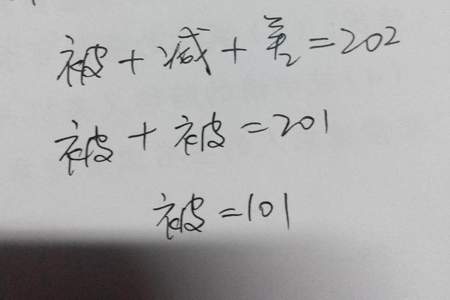 被+减+差=202
被+被=201
被=101